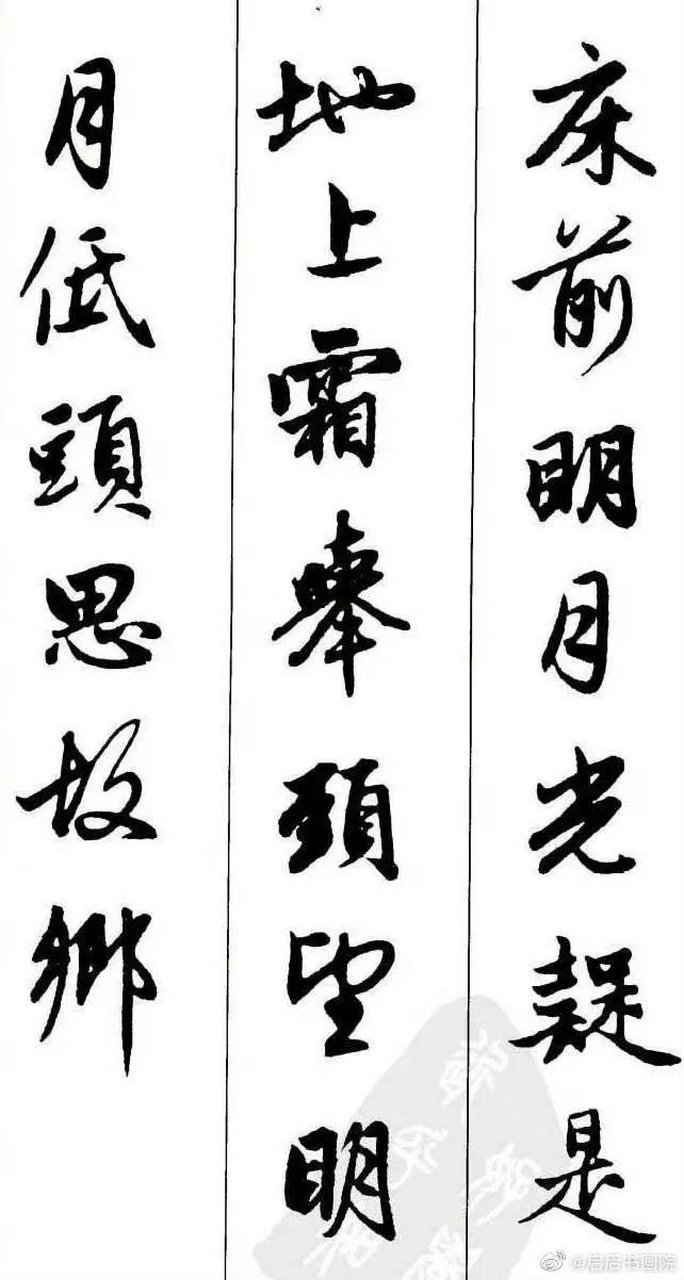 床前明月光疑是
地上霜舉頭望明
月低頭思故鄉
@启启书画院